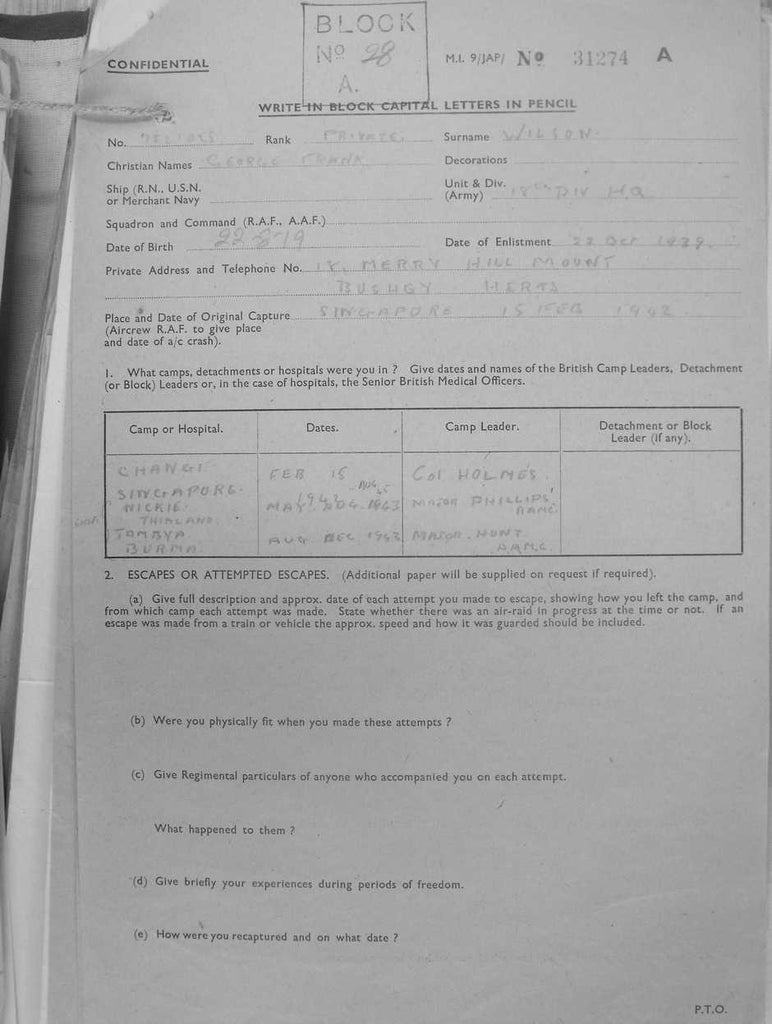 BLOCK
Nº 28
A.
CONFIDENTIAL
M.I. 9/JAP/ Nº 31274 A
WRITE IN BLOCK CAPITAL LETTERS IN PENCIL
No. Rank PRIVATE. Surname WILSON.
Christian Names GEORGE FRANK Decorations
Ship (R.N., U.S.N. or Merchant Navy Unit & Div. (Army) 18th DIV HQ
Squadron and Command (R.A.F., A.A.F.)
Date of Birth 22-8-19 Date of Enlistment 22 OCT 1939.
Private Address and Telephone No. 18, MERRY HILL MOUNT
BUSHEY HERTS
Place and Date of Original Capture SINGAPORE 15 FEB 1942
(Aircrew R.A.F. to give place
and date of a/c crash).
1. What camps, detachments or hospitals were you in ? Give dates and names of the British Camp Leaders, Detachment
(or Block) Leaders or, in the case of hospitals, the Senior British Medical Officers.
Camp or Hospital. Dates. Camp Leader. Detachment or Block
Leader (if any).
CHANGI FEB 15 Col HOLMES.
SINGAPORE. 1942 AUG 45
NICKIE. MAY AUG. 1943 MAJOR PHILLIPS
THIALAND. RAMC.
TAMBYA AUG DEC 1943 MAJOR HUNT
BURMA. RAMC.
2. ESCAPES OR ATTEMPTED ESCAPES. (Additional paper will be supplied on request if required).
(a) Give full description and approx. date of each attempt you made to escape, showing how you left the camp, and
from which camp each attempt was made. State whether there was an air-raid in progress at the time or not. If an
escape was made from a train or vehicle the approx. speed and how it was guarded should be included.
(b) Were you physically fit when you made these attempts ?
(c) Give Regimental particulars of anyone who accompanied you on each attempt.
What happened to them ?
(d) Give briefly your experiences during periods of freedom.
(e) How were you recaptured and on what date ?
P.T.O.